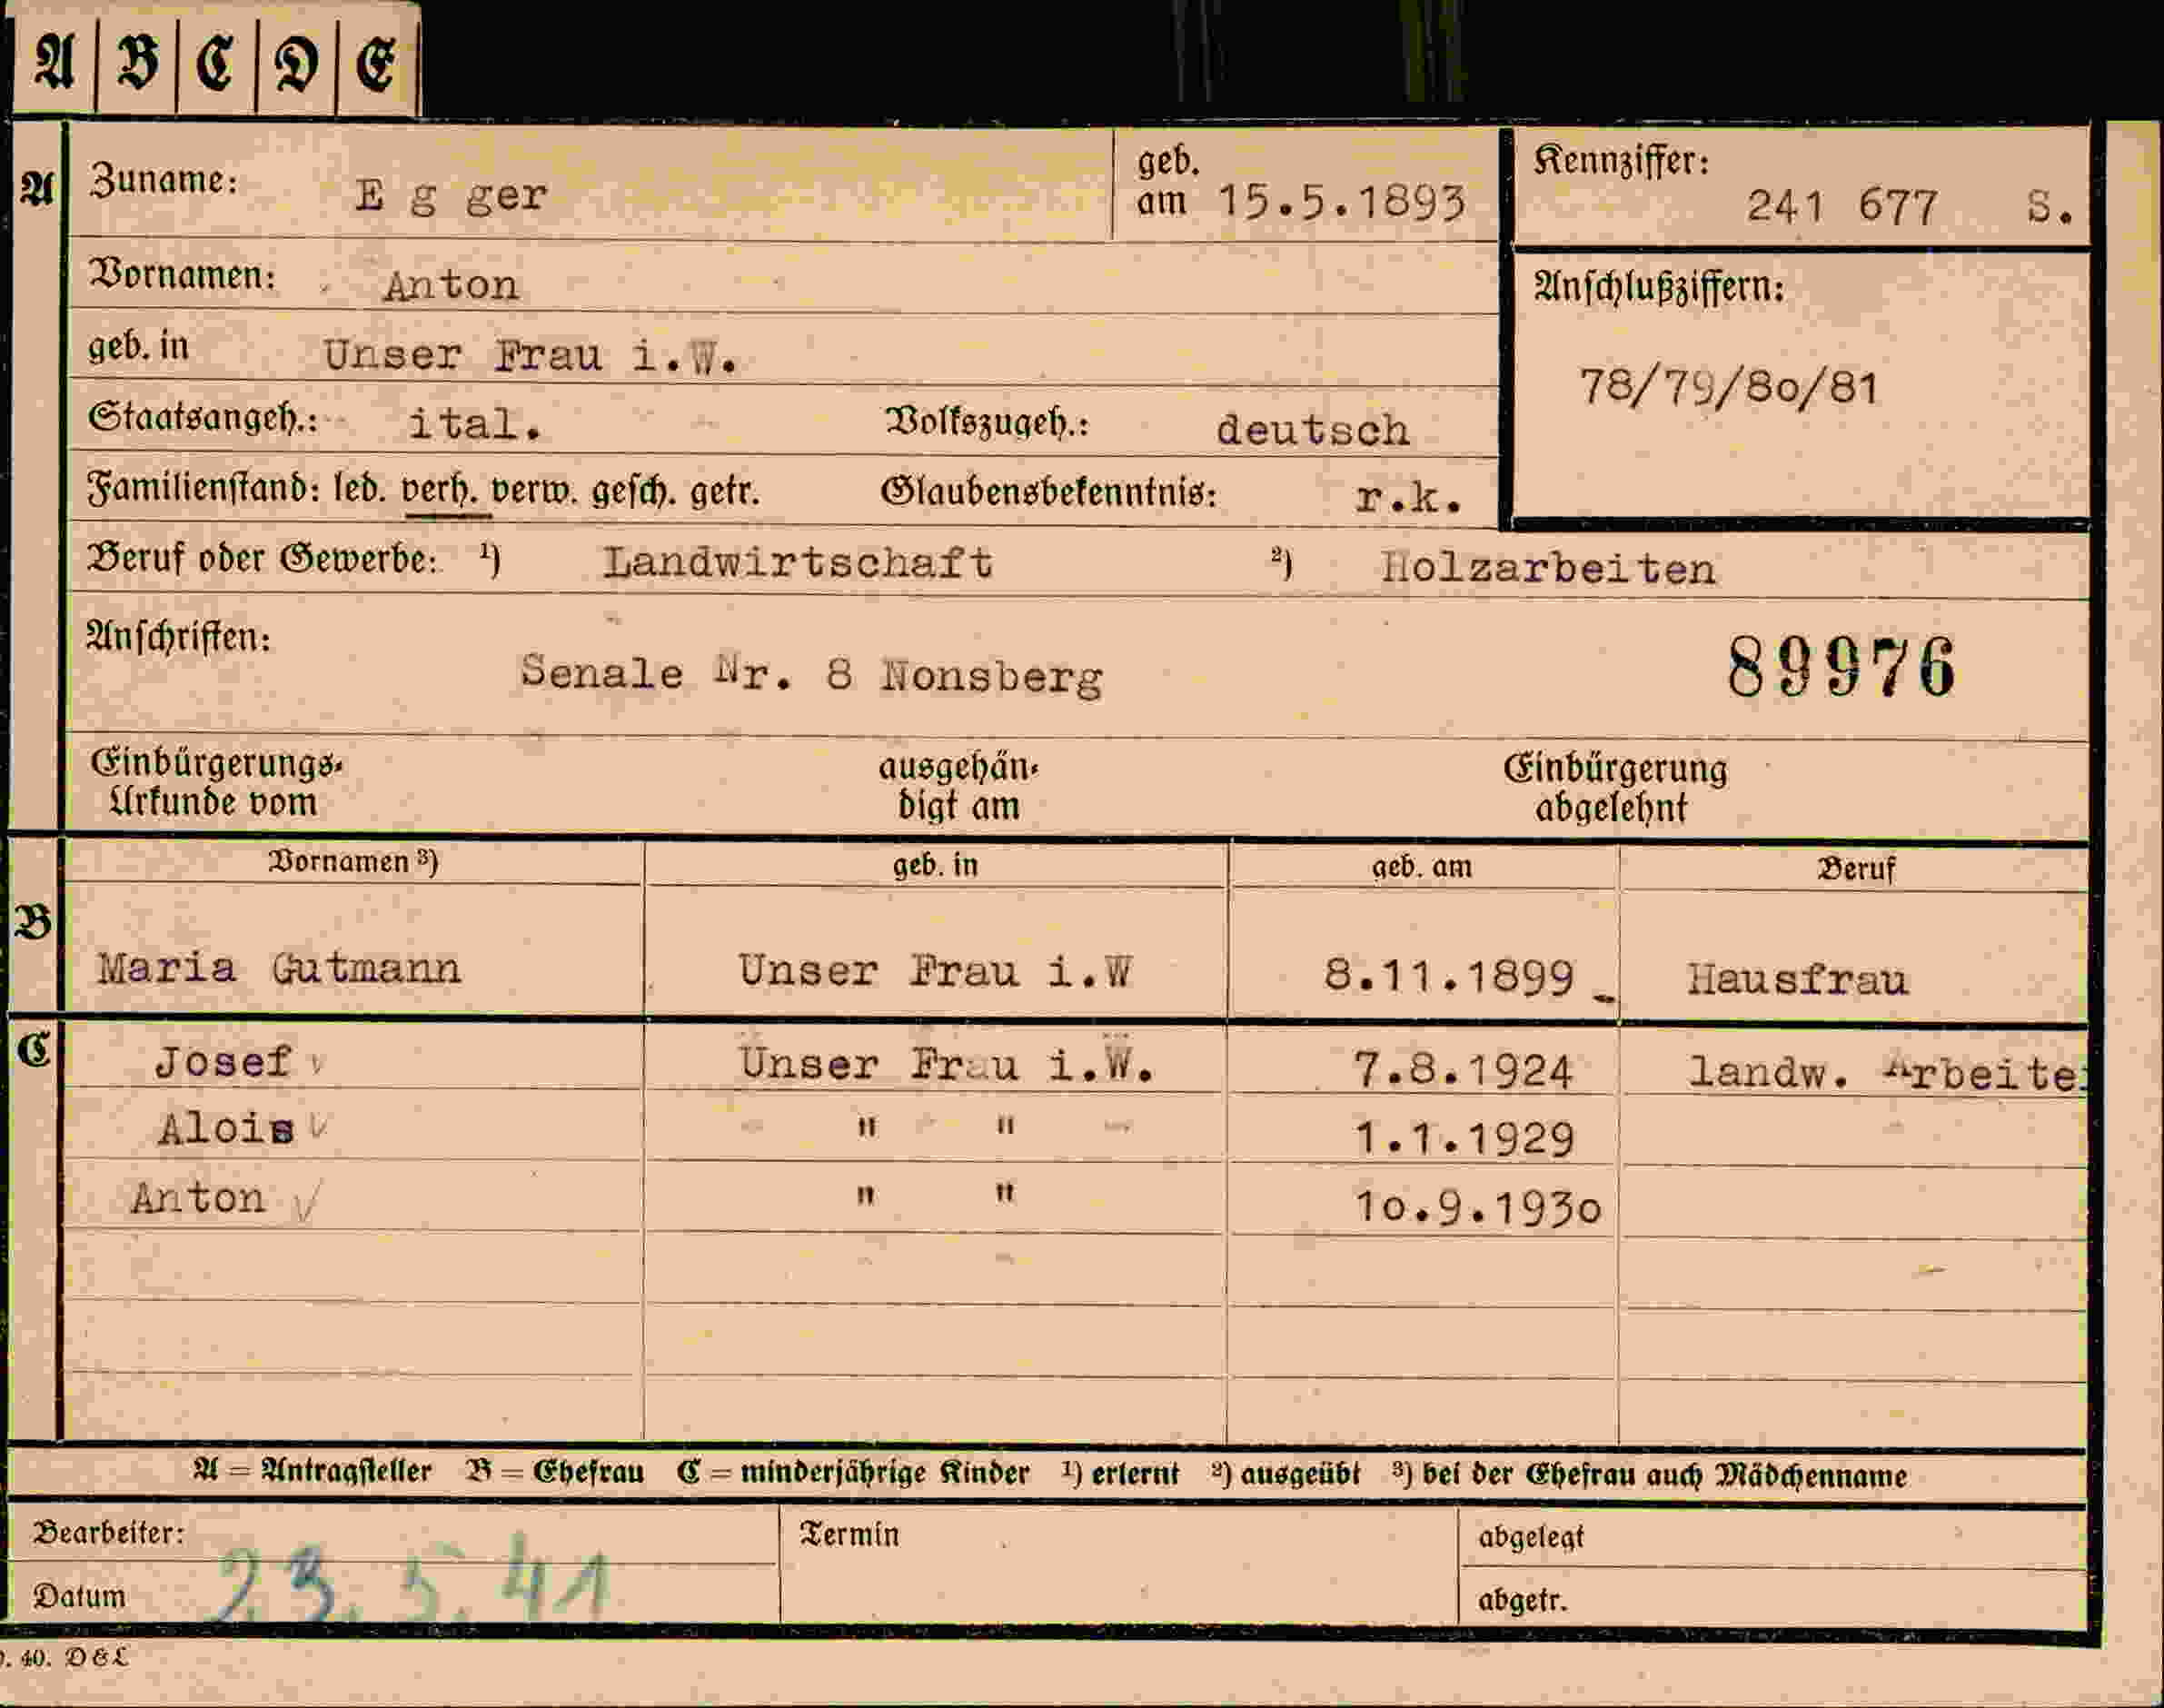 A B C D E
A Zuname: E g ger geb. am 15.5.1893 Kennziffer: 241 677 S.
Vornamen: Anton Anschlußziffern:
geb. in Unser Frau i.W. 78/79/80/81
Staatsangeh.: ital. Volkszugeh.: deutsch
Familienstand: led. verh. verw. gesch. getr. Glaubensbekenntnis: r.k.
Beruf oder Gewerbe: ¹) Landwirtschaft ²) Holzarbeiten
Anschriften: 89976
Senale Nr. 8 Nonsberg
Einbürgerungs- ausgehän- Einbürgerung
Urkunde vom digt am abgelehnt
Vornamen ³) geb. in geb. am Beruf
B Maria Gutmann Unser Frau i.W 8.11.1899 Hausfrau
C Josef Unser Frau i.W. 7.8.1924 landw. Arbeite
Alois " " 1.1.1929
Anton " " 10.9.1930
A = Antragsteller B = Ehefrau C = minderjährige Kinder ¹) erlernt ²) ausgeübt ³) bei der Ehefrau auch Mädchenname
Bearbeiter: Termin abgelegt
Datum 23.5.41 abgetr.
. 40. D&L